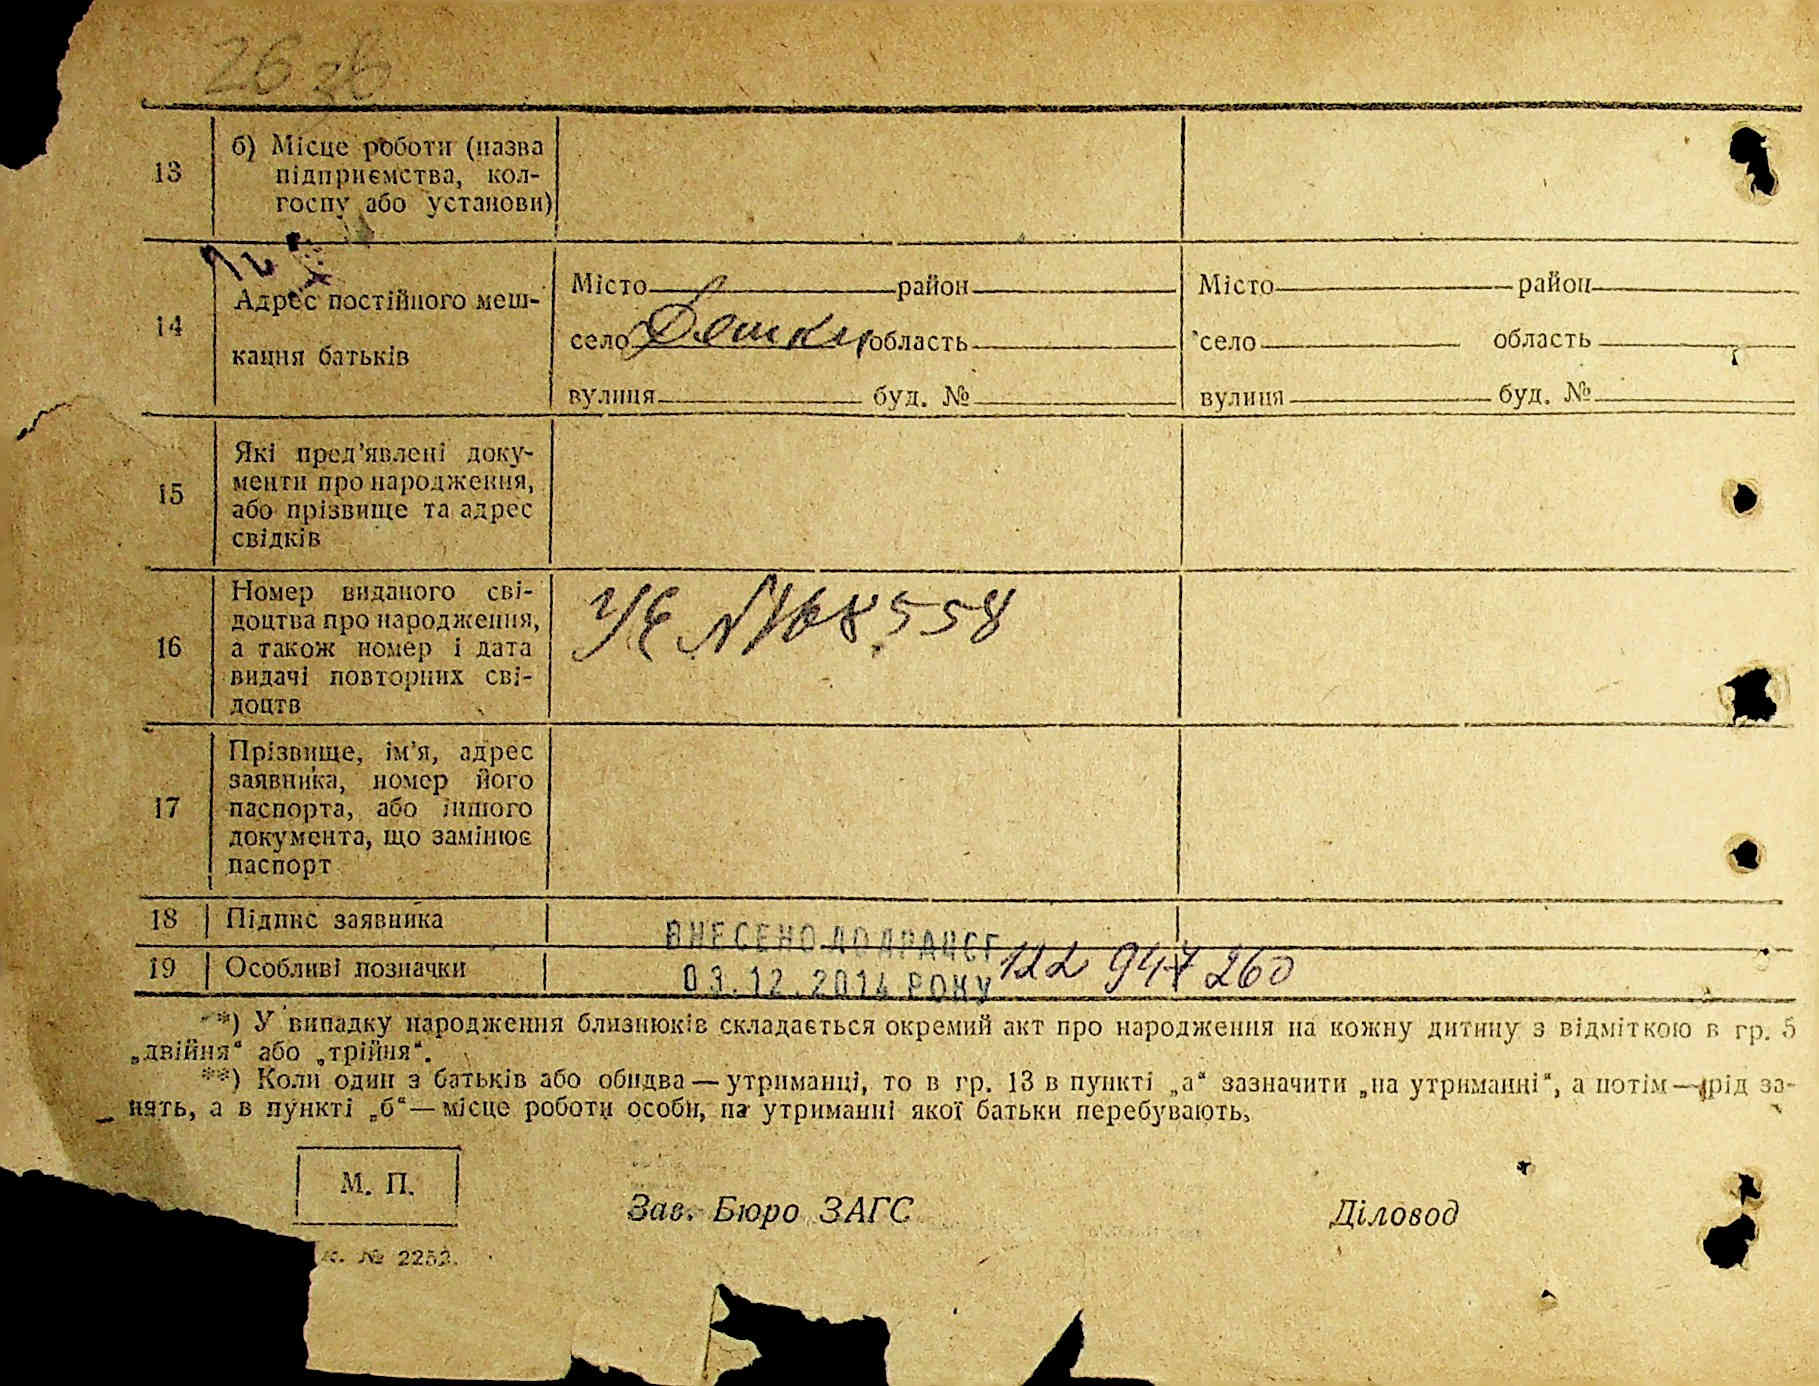 26 зв
13
б) Місце роботи (назва
підприємства, кол-
госпу або установи)
14
Адрес постійного меш-
кання батьків
Місто район
село Дешки область
вулиця буд. №
Місто район
село область
вулиця буд. №
15
Які пред'явлені доку-
менти про народження,
або прізвище та адрес
свідків
16
Номер виданого сві-
доцтва про народження,
а також номер і дата
видачі повторних сві-
доцтв
УЕ №168558
17
Прізвище, ім'я, адрес
заявника, номер його
паспорта, або іншого
документа, що замінює
паспорт
18 Підпис заявника
ВНЕСЕНО ДО ДРАЦСГ
19 Особливі позначки
03.12.2014 РОКУ 122 947 260
*) У випадку народження близнюків складається окремий акт про народження на кожну дитину з відміткою в гр. 5
„двійня“ або „трійня“.
**) Коли один з батьків або обидва — утриманці, то в гр. 13 в пункті „а“ зазначити „на утриманні“, а потім — рід за-
нять, а в пункті „б“ — місце роботи особи, на утриманні якої батьки перебувають.
М. П.
Зав. Бюро ЗАГС
Діловод
№ 2252.